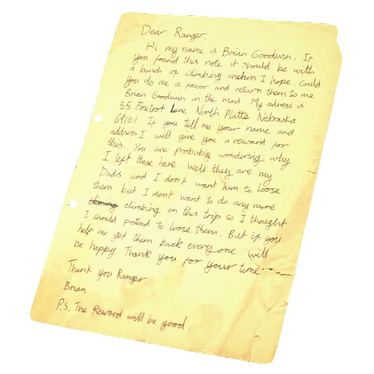 Dear Ranger.
Hi my name is Brian Goodwin. If
you found this note it should be with
a bunch of climbing anchors I hope. Could
you do me a favor and return them to me
Brian Goodwin in the mail. My adress is
55 Foxtrot Lane North Platte Nebraska
69101 If you tell me your name and
address I will give you a reward for
this. You are probably wondering why
I left these here. Well they are my
Dad's and I don't want him to loose
them but I don't want to do any more
climbing on this trip so I thought
I should pretend to loose them. But if you
help me get them back everyone will
be happy. Thank you for your time
Thank you Ranger
Brian
P.S. The Reward will be good